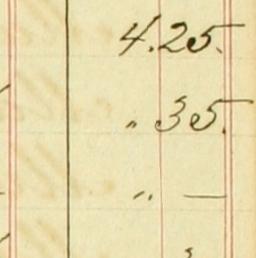 4.25.
" 35.
" —